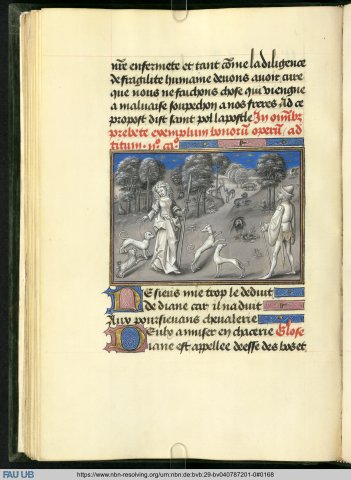 nr̄e enfermete et tant com̄e la diligence
de fragilite humaine deuons auoir cure
que nous ne fachons chose qui viengne
a malvaise souspechon a nos freres Ad ce
propost dist saint pol lapostle In om̄ibz
prebete exemplum bonorū operū / ad
titum · ijº caº
NE sieus mie trop le deduit
de diane car il na duit
Aux poursievans chevalerie
DEulx amuser en chacerie Glose
Diane est appellee deesse des bos et
FAU UB
https://www.nbn-resolving.org/urn:nbn:de:bvb:29-bv040787201-0#0168